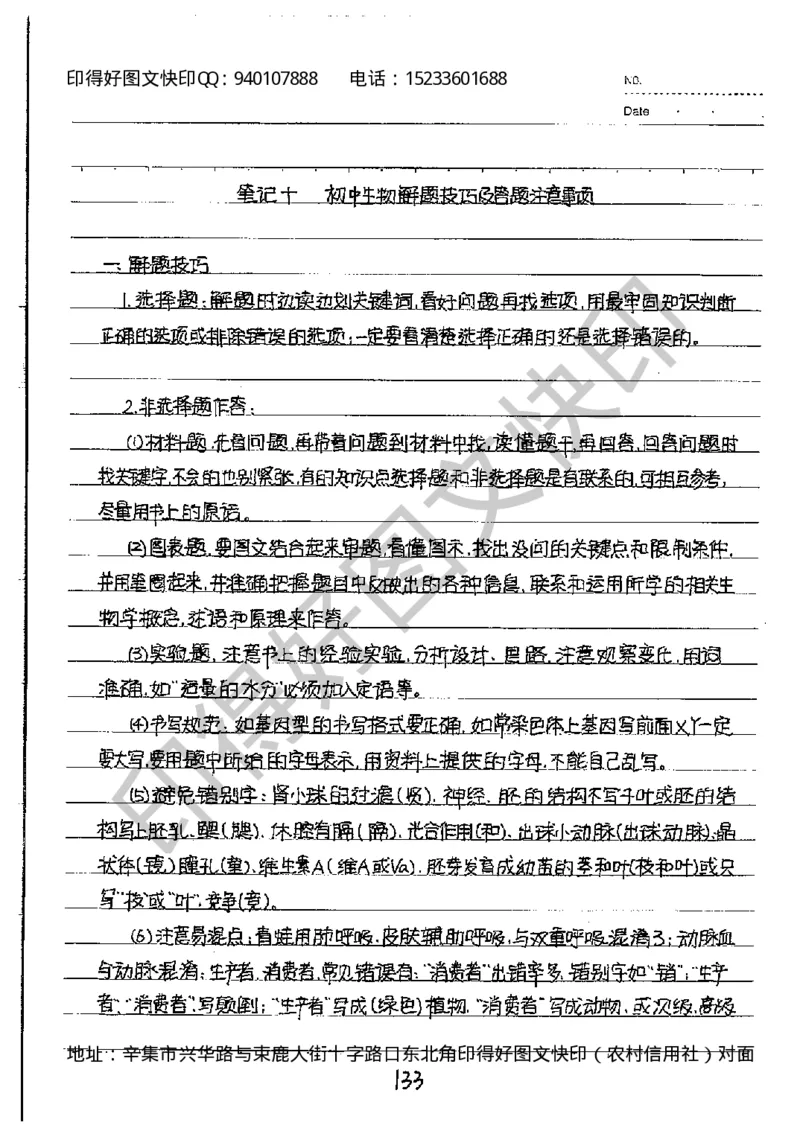 印得好图文快印QQ：940107888　电话：15233601688
NO.
Date
笔记十　初中生物解题技巧及答题注意事项
一、解题技巧
1.选择题：解题时边读边划关键词，看好问题再找选项，用最牢固知识判断
正确的选项或排除错误的选项；一定要看清楚选择正确的还是选择错误的。
2.非选择题作答：
(1)材料题，先看问题，再带着问题到材料中找，读懂题干，再回答，回答问题时
找关键字，不会的也别紧张，有的知识点选择题和非选择题是有联系的，可相互参考，
尽量用书上的原话。
(2)图表题，要图文结合起来审题，看懂图示，找出设问的关键点和限制条件，
并用笔圈起来，并准确把握题目中反映出的各种信息，联系和运用所学的相关生
物学概念，术语和原理来作答。
(3)实验题，注意书上的经验实验，分析设计、思路，注意观察变化，用词
准确，如“适量的水分”必须加入定语等。
(4)书写规范：如基因型的书写格式要正确，如常染色体上基因写前面XY一定
要大写，要用题中所给的字母表示，用资料上提供的字母，不能自己乱写。
(5)避免错别字：肾小球的过滤(虑)，神经，胚的结构不写子叶或胚的结
构写上胚乳、腮(腮)，体腔有膈(隔)，光合作用(和)，出球小动脉(出球动脉)，晶
状体(镜)瞳孔(童)，维生素A(维A或Va)，胚芽发育成幼苗的茎和叶(枝和叶)或只
写“枝”或“叶”，竞争(竟)。
(6)注意易混点：青蛙用肺呼吸，皮肤辅助呼吸，与双重呼吸混淆了；动脉血
与动脉混淆；生产者，消费者，常见错误有：“消费者”出错率多，错别字如“销”；“生产
者”“消费者”写颠倒；“生产者”写成(绿色)植物，“消费者”写成动物，或次级，高级
地址：辛集市兴华路与束鹿大街十字路口东北角印得好图文快印（农村信用社）对面
133
印得好图文快印